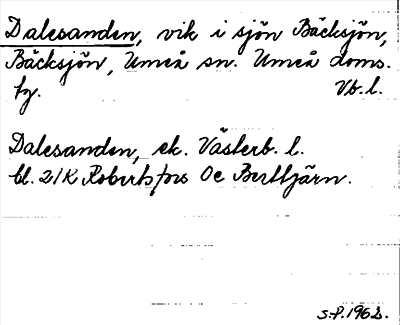 Dalesanden, vik i sjön Bäcksjön,
Bäcksjön, Umeå sn. Umeå doms.
fg. Vb. l.
Dalesanden, ek. Västerb. l.
bl. 21K Robertsfors Oc Berttjärn.
S.P. 1962.